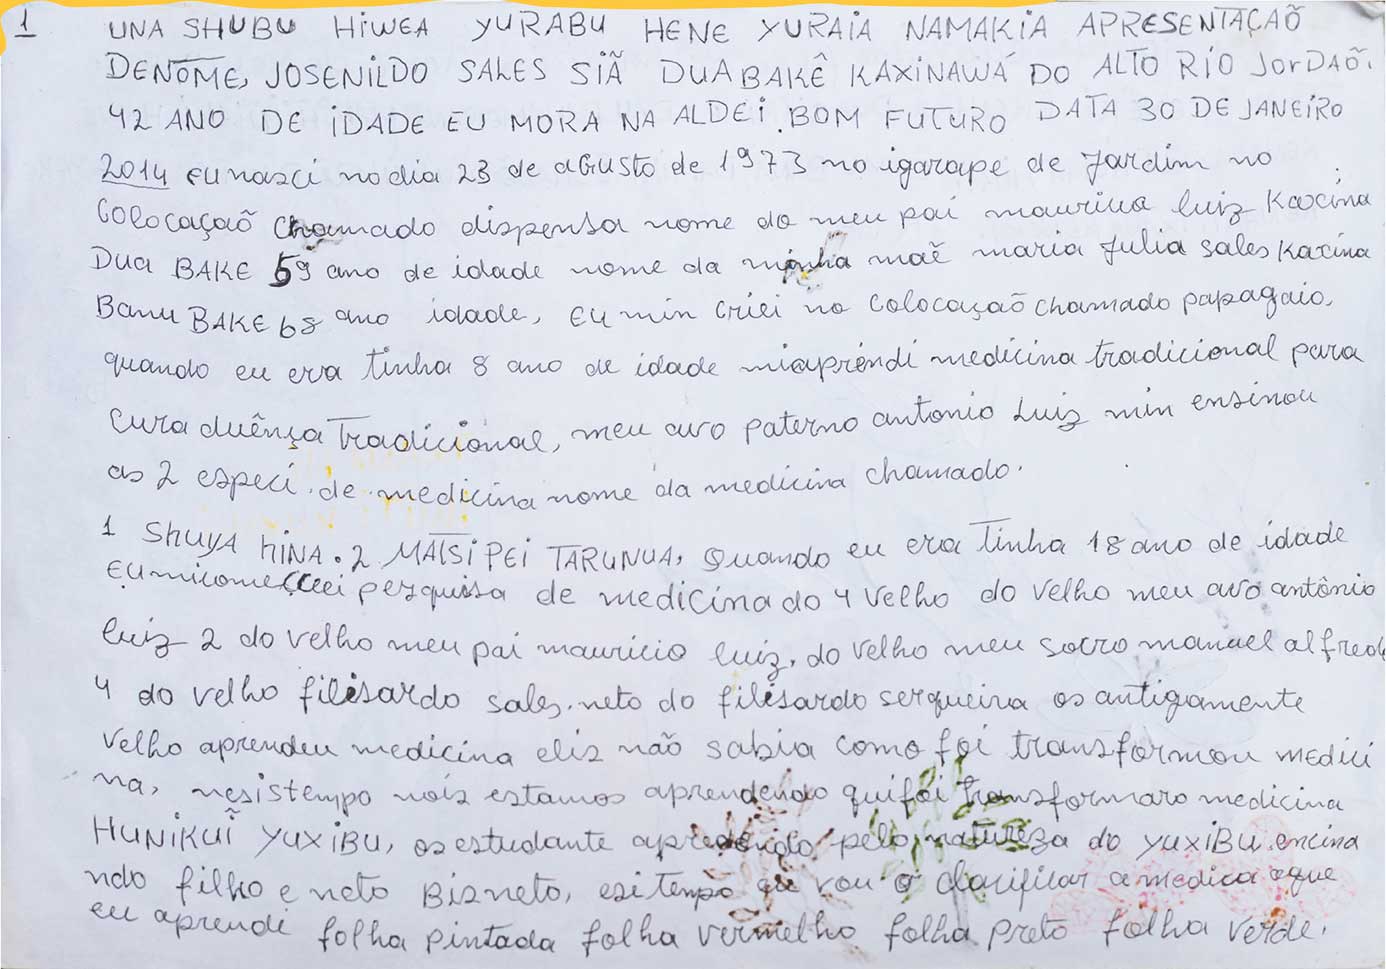 1 UNA SHUBU HIWEA YURABU HENE YURAIA NAMAKIA APRESENTAÇAÕ
DENOME, JOSENILDO SALES SIÃ DUA BAKÊ KAXINAWÁ DO ALTO RIO JORDAÕ.
42 ANO DE IDADE EU MORA NA ALDEI. BOM FUTURO DATA 30 DE JANEIRO
2014 EU nasci no dia 23 de aGusto de 1973 no igarape de Jardim no
Colocaçaõ chamado dispensa nome do meu pai luiz Kaxina
Dua BAKE 59 ano de idade nome da minha maẽ maria Julia sales Kaxina
Banu BAKE 68 ano idade, EU min criei no Colocaçaõ chamado papagaio,
quando eu era tinha 8 ano de idade miaprendi medicina tradicional para
cura duênça Tradicional, meu avo paterno antonio Luiz min ensinou
as 2 especi. de medicina nome da medicina chamado.
1 SHUYA HINA. 2 MATSI PEI TARUNUA, Quando eu era Tinha 18 ano de idade
EU pesquisa de medicina do 4 Velho do Velho meu avo antônio
luiz 2 do Velho meu pai mauricio luiz, do Velho meu socro manuel alfredo
4 do velho filisardo sales. neto do filisardo serqueira os antigamente
Velho aprendeu medicina elis não sabia como foi transformou medici
na, nesistempo nois estamos aprendendo quifoi transformaro medicina
HUNIKUĨ YUXIBU, os estudante aprendendo pelo natureza do YUXIBU. encina
ndo filho e neto Bisneto, esitempo que vou o clarificar a medica que
eu aprendi folha pintada folha vermelho folha preto folha verde.